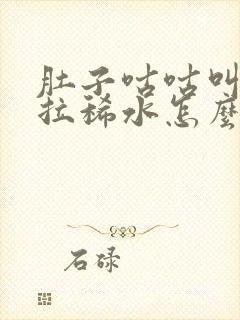 肚子咕咕叫
拉稀水怎麼
石碌